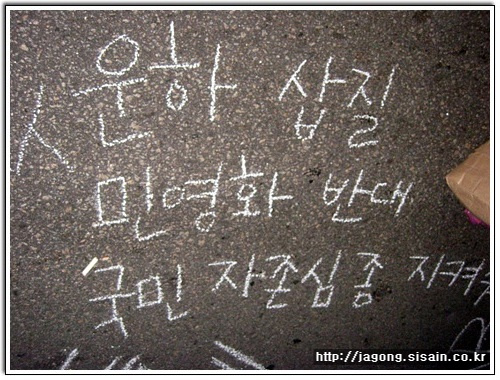 운하 삽질
민영화 반대
국민 자존심 좀 지켜
http://jagong.sisain.co.kr